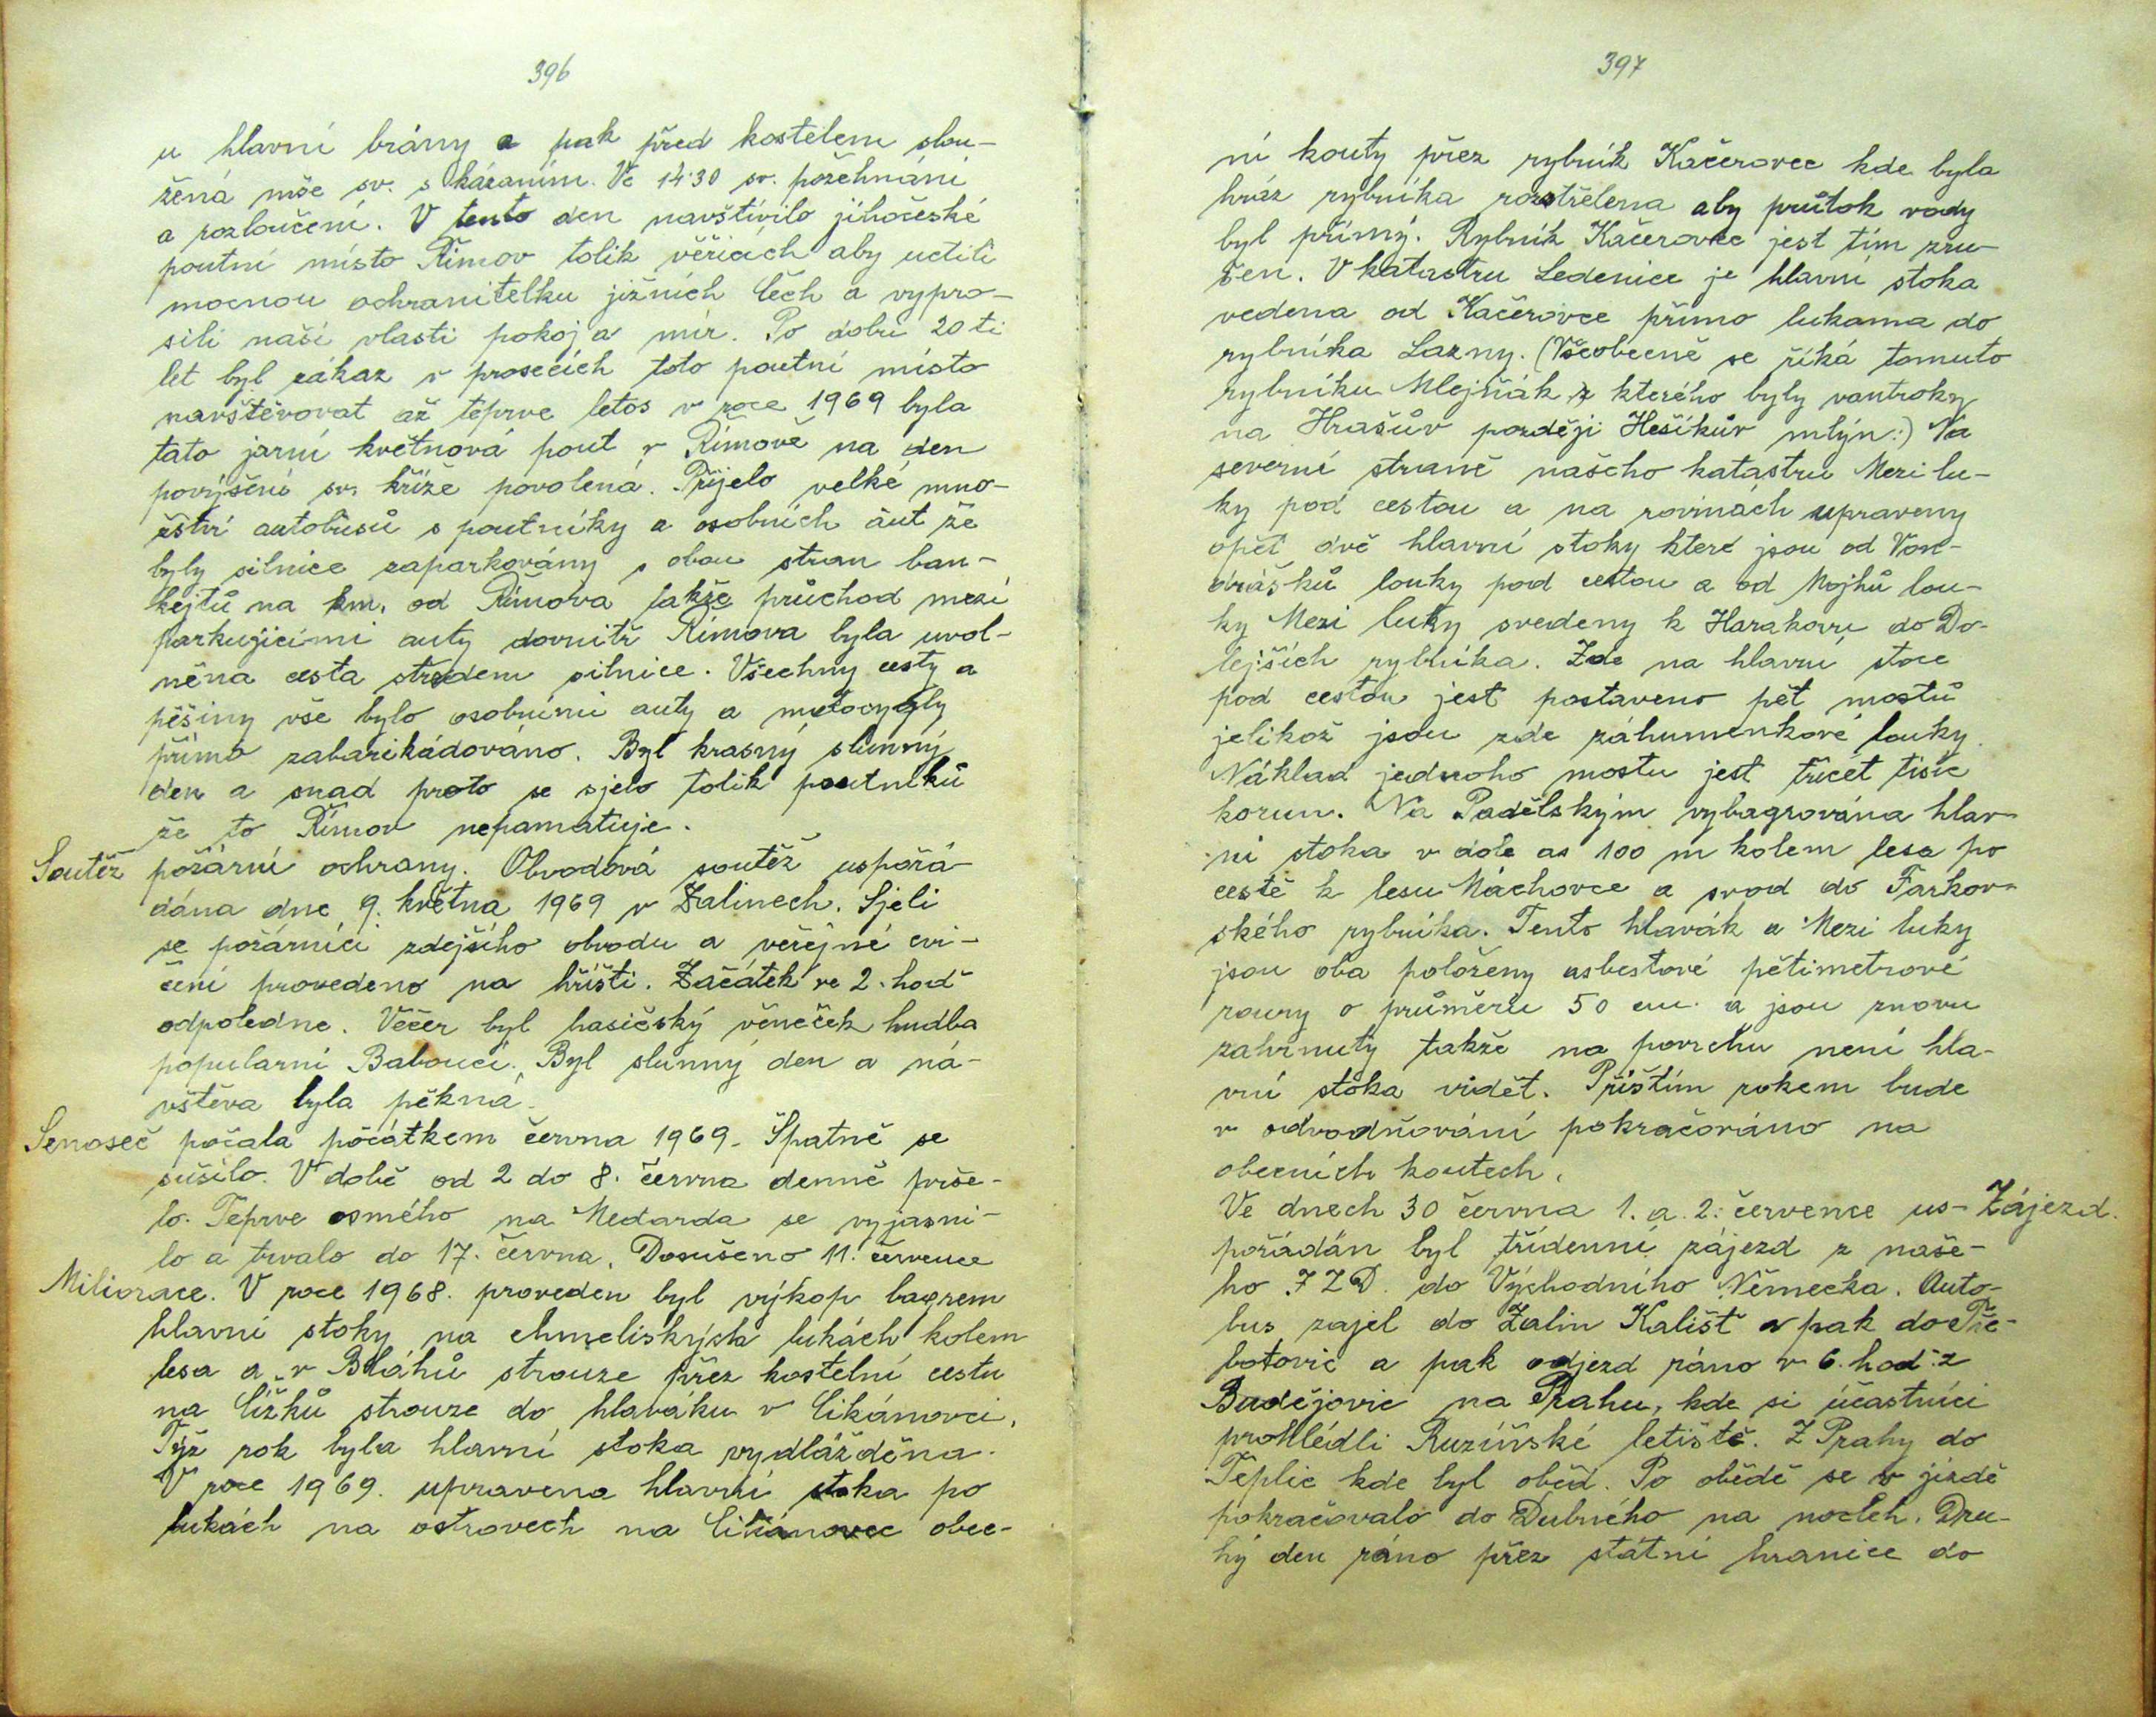 396
u hlavní brány a pak před kostelem slou-
žená mše sv. s kázaním. Ve 14˙30 sv. požehnání
a rozloučení. V tento den navštívilo jihočeské
poutní místo Římov tolik věřících aby uctili
mocnou ochranitelku jižních Čech a vypro-
sili naší vlasti pokoj a mír. Po dobu 20 ti
let byl zákaz v procecích toto poutní místo
navštěvovat až teprve letos v roce 1969 byla
tato jarní květnová pout v Římově na den
povýšení sv. kříže povolená. Přijelo velké mno-
žství autobusů s poutníky a osobních aut že
byly silnice zaparkovány s obou stran ban-
kejtů na km. od Římova takže průchod mezi
parkujícimi auty dovnitř Římova byla uvol-
něna cesta středem silnice. Všechny cesty a
pěšiny vše bylo osobními auty a motocykly
přímo zabarikádováno. Byl krasný slunný
den a snad proto se sjelo tolik poutníků
že to Římov nepamatuje.
Soutěž požární ochrany. Obvodová soutěž uspořá-
dána dne 9. května 1969 v Žalinech. Sjeli
se požárníci zdejšího obvodu a veřejné cvi-
čení provedeno na hřišti. Začátek ve 2. hod
odpoledne. Večer byl hasičský věneček hudba
popularní Babouci. Byl slunný den a ná-
vštěva byla pěkná.
Senoseč počala počátkem června 1969. Špatně se
sušilo. V době od 2 do 8. června denně prše-
lo. Teprve osmého na Medarda se vyjasni-
lo a trvalo do 17. června. Dosušeno 11. července
Miliorace. V roce 1968. proveden byl výkop bagrem
hlavní stoky na chmeliských lukách kolem
lesa a v Bláhů strouze přez kostelní cestu
na Čížků strouze do hlaváku v Cikánovci.
Týž rok byla hlavní stoka vydlážděna.
V roce 1969. upravena hlavní stoka po
lukách na ostrovech na Cikánovec obec-
397
ní kouty přez rybník Kačerovec kde byla
hráz rybníka rozstřelena aby průtok vody
byl přímý. Rybník Kačerovec jest tím zru-
šen. V katastru Ledenice je hlavní stoka
vedena od Kačerovce přímo lukama do
rybníka Lazny. (Všeobecně se říká tomuto
rybníku Mlejňák z kterého byly vantroky
na Hrašův později Hešíkův mlýn:) Na
severní straně našeho katastru Mezi lu-
ky pod cestou a na rovinách upraveny
opět dvě hlavní stoky které jsou od Von-
drášků louky pod cestou a od Mojhů lou-
ky Mezi luky svedeny k Harakovu do Do-
lejších rybníka. Zde na hlavní stoce
pod cestou jest postaveno pět mostů
jelikož jsou zde záhumenkové louky.
Náklad jednoho mostu jest třicet tisíc
korun. Na Padělským vybagrována hlav-
ní stoka v dole as 100 m kolem lesa po
cestě k lesu Máchovce a svod do Farkov-
ského rybníka. Tento hlavák a Mezi luky
jsou oba položeny asbestové pětimetrové
roury o průměru 50 cm. a jsou znovu
zahrnuty takže na povrchu není hla-
vní stoka vidět. Příštím rokem bude
v odvodňování pokračováno na
obecních koutech.
Ve dnech 30 června 1. a 2. července us- Zájezd.
pořádán byl třídenní zájezd z naše-
ho JZD. do Východního Německa. Auto-
bus zajel do Žalin Kališt a pak do Tře-
botovic a pak odjezd ráno v 6. hod. z
Budějovic na Prahu, kde si účastníci
prohlédli Ruzíňské letiště. Z Prahy do
Teplic kde byl oběd. Po obědě se v jízdě
pokračovalo do Dubného na nocleh. Dru-
hý den ráno přez státní hranice do